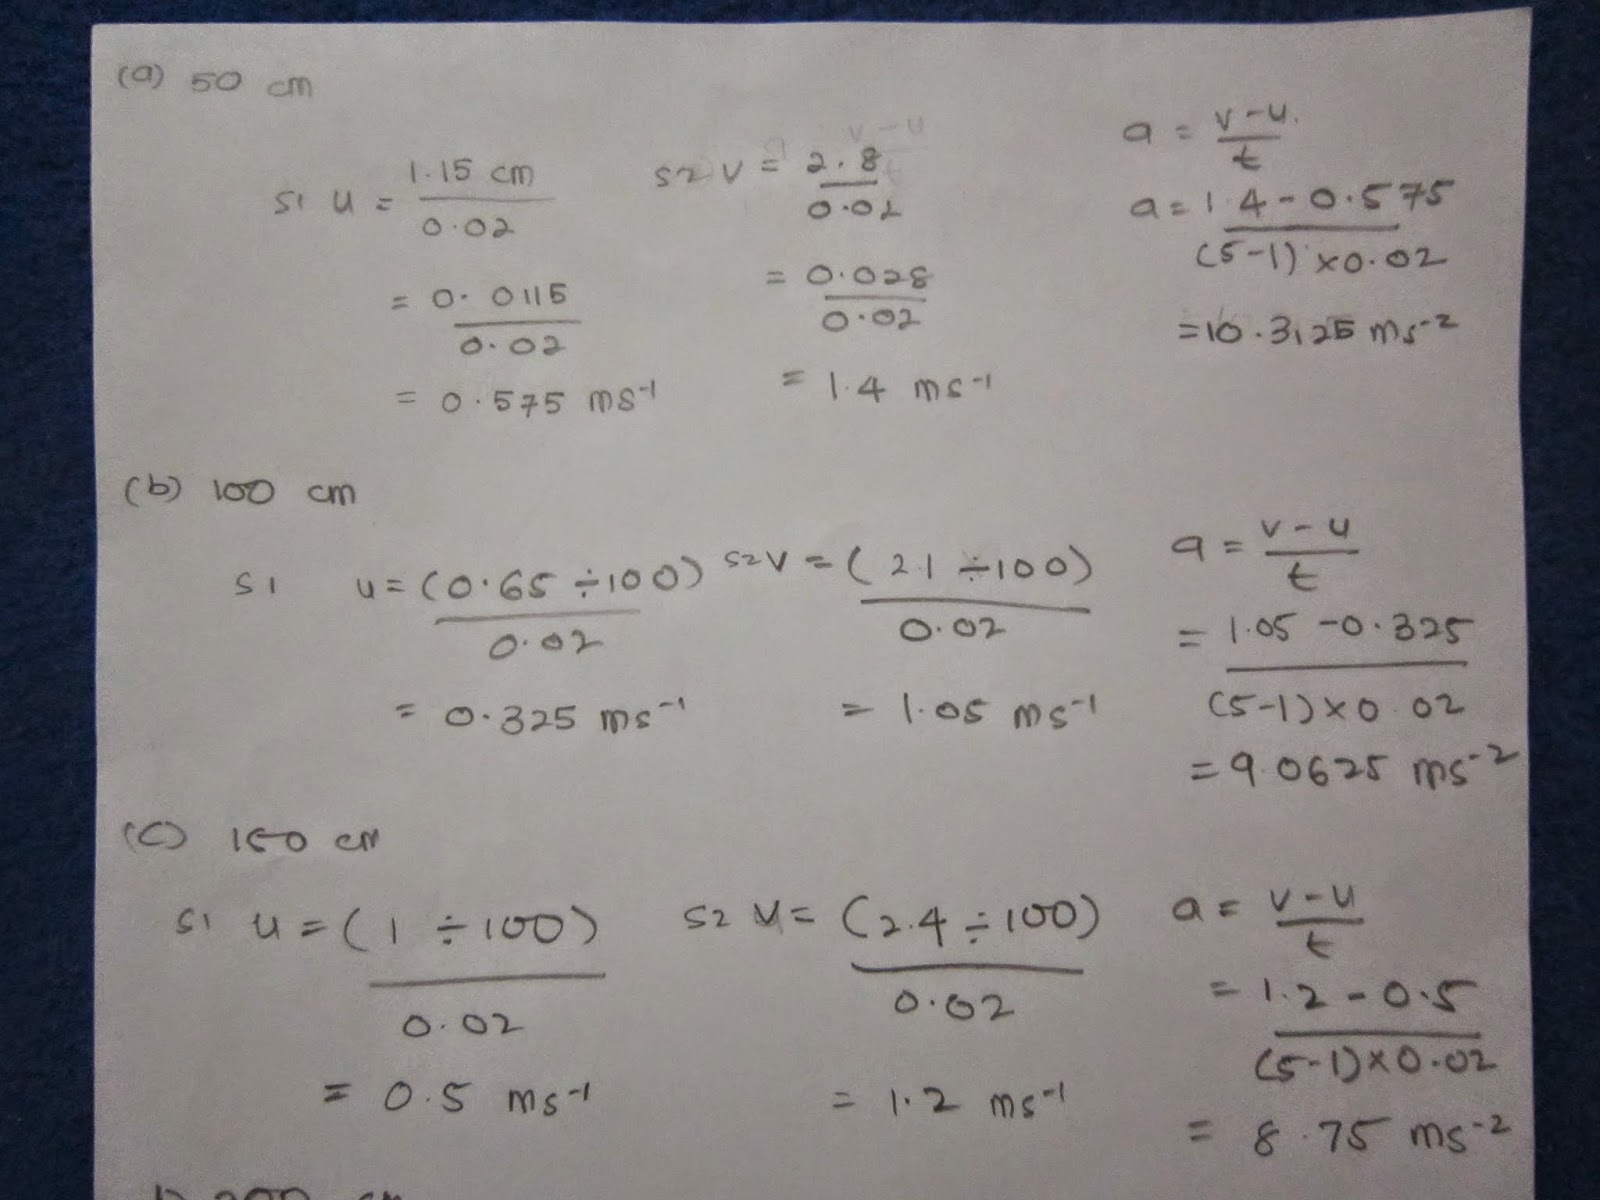 (a) 50 cm
s1 u = 1.15 cm / 0.02
= 0.0115 / 0.02
= 0.575 ms⁻¹
s2 v = 2.8 / 0.02
= 0.028 / 0.02
= 1.4 ms⁻¹
a = v-u / t
a = 1.4-0.575 / (5-1) x0.02
=10.3125 ms⁻²
(b) 100 cm
s1 u = (0.65 ÷100) / 0.02
= 0.325 ms⁻¹
s2 v = (2.1 ÷100) / 0.02
= 1.05 ms⁻¹
a = v-u / t
= 1.05 -0.325 / (5-1)x0.02
= 9.0625 ms⁻²
(c) 150 cm
s1 u = (1 ÷100) / 0.02
= 0.5 ms⁻¹
s2 v = (2.4 ÷100) / 0.02
= 1.2 ms⁻¹
a = v-u / t
= 1.2-0.5 / (5-1)x0.02
= 8.75 ms⁻²